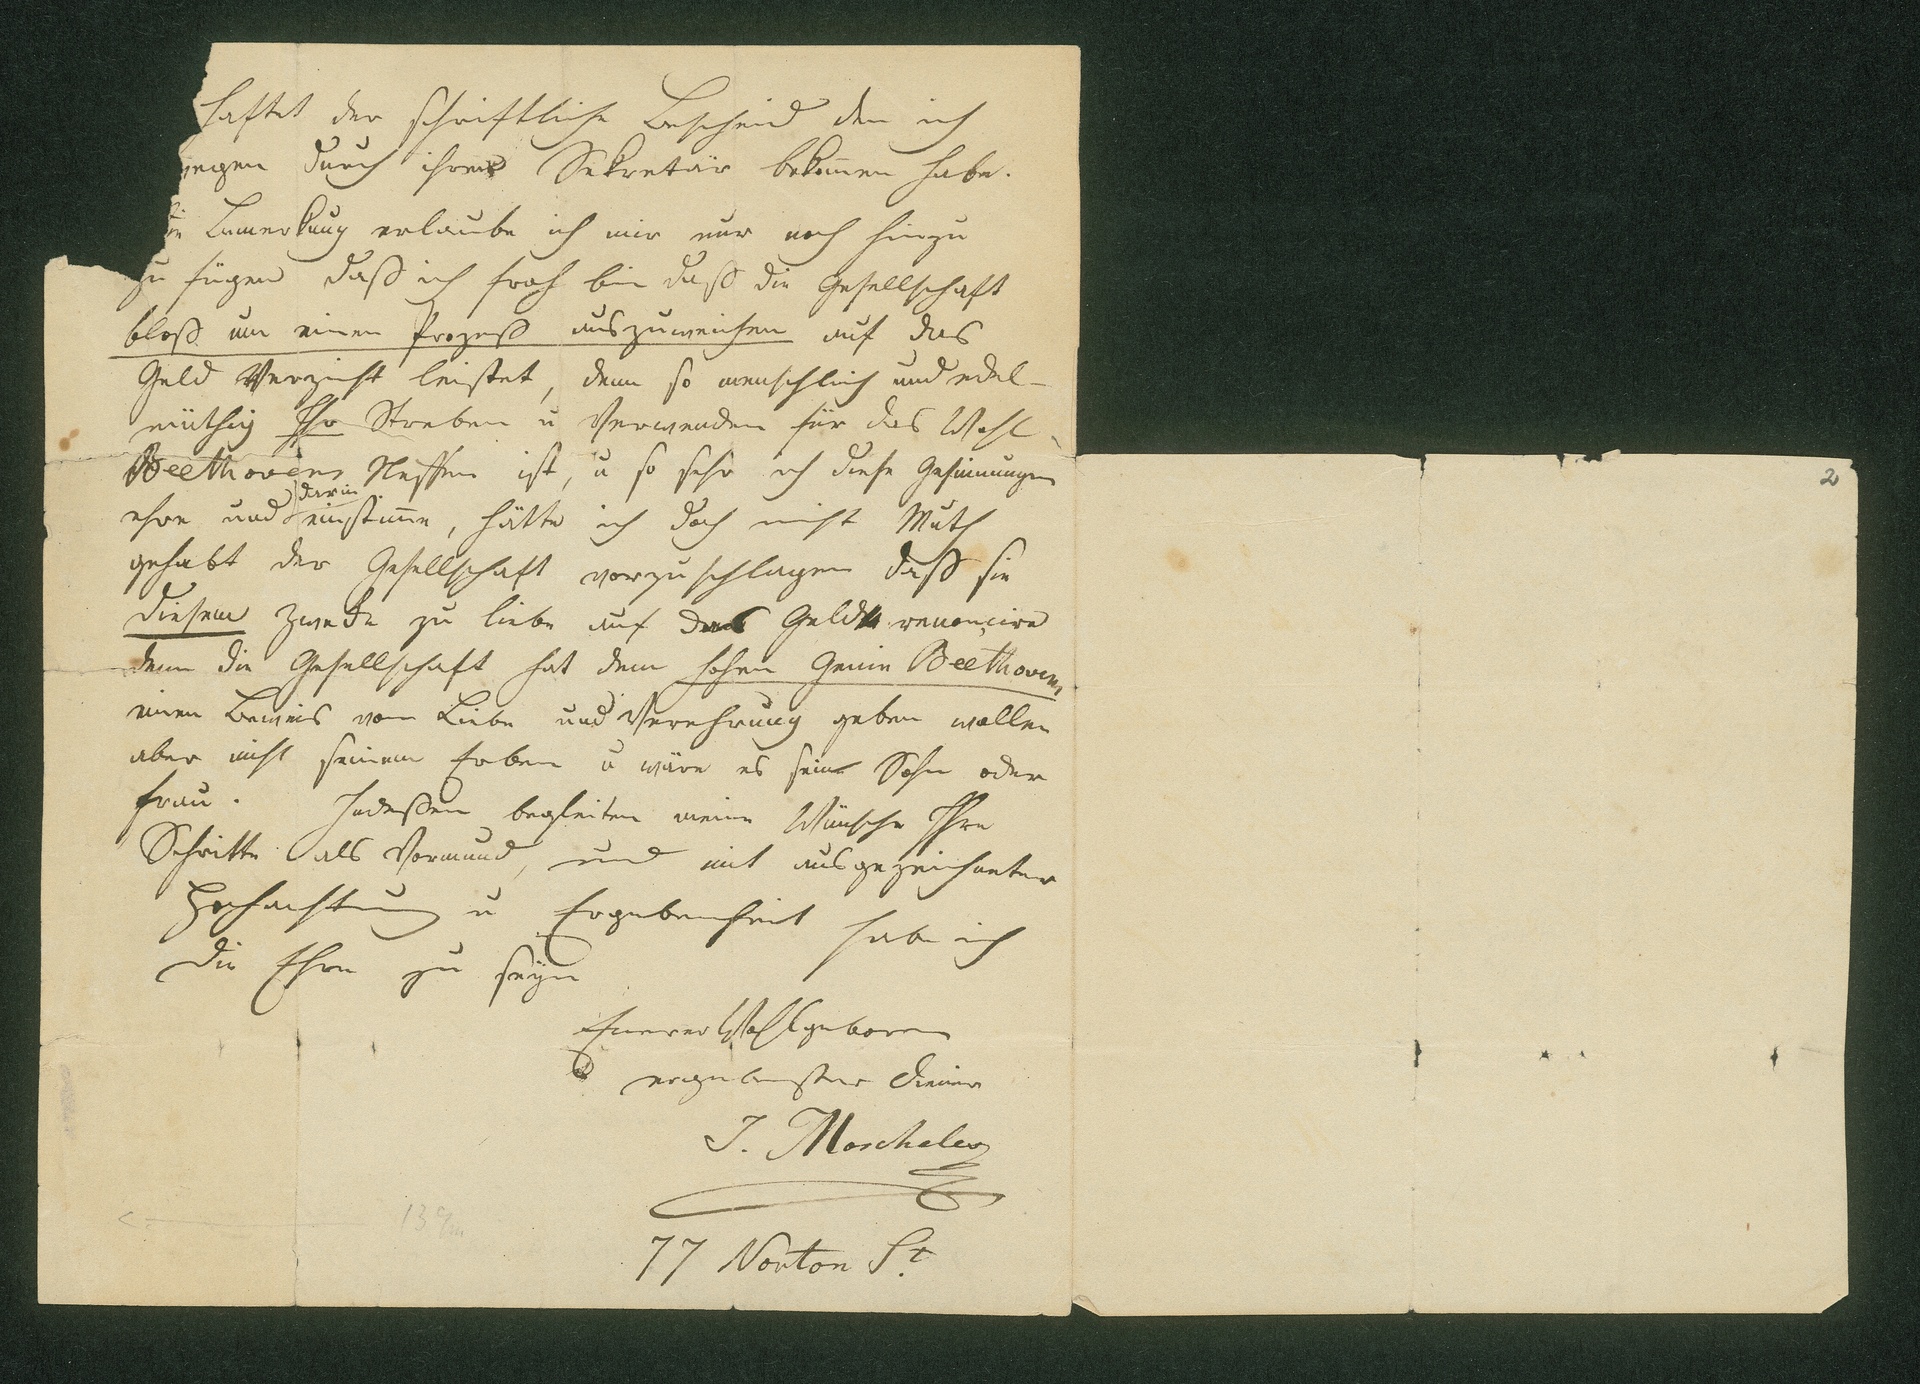 haftet der schriftliche Bescheid den ich
wegen durch ihren Sekretär bekom̄en habe.
Bemerkung erlaube ich mir nur noch hinzu
zu fügen daß ich froh bin daß die Gesellschaft
bloß um einen Prozeß auszuweichen auf das
Geld Verzicht leistet, denn so menschlich und edel-
müthig Ihr Streben u Verwenden für das Wohl
Beethovens Neffen ist, u so sehr ich diese Gesinnungen
ehre und darin einstim̄e, hätte ich doch nicht Muth
gehabt der Gesellschaft vorzuschlagen daß sie
diesem Zwecke zu liebe auf das Geld renoncire
denn die Gesellschaft hat dem hohen Genie Beethovens
einen Beweis von Liebe und Verehrung geben wollen
aber nicht seinem Erben u wäre es sein Sohn oder
Frau. Indeßen begleiten meine Wünsche Ihre
Schritte als Vormund, und mit ausgezeichneter
Hochachtung u Ergebenheit habe ich
die Ehre zu seyn
Euerer Wohlgeboren
ergebenster Diener
J. Moscheles
77 Norton St.
2